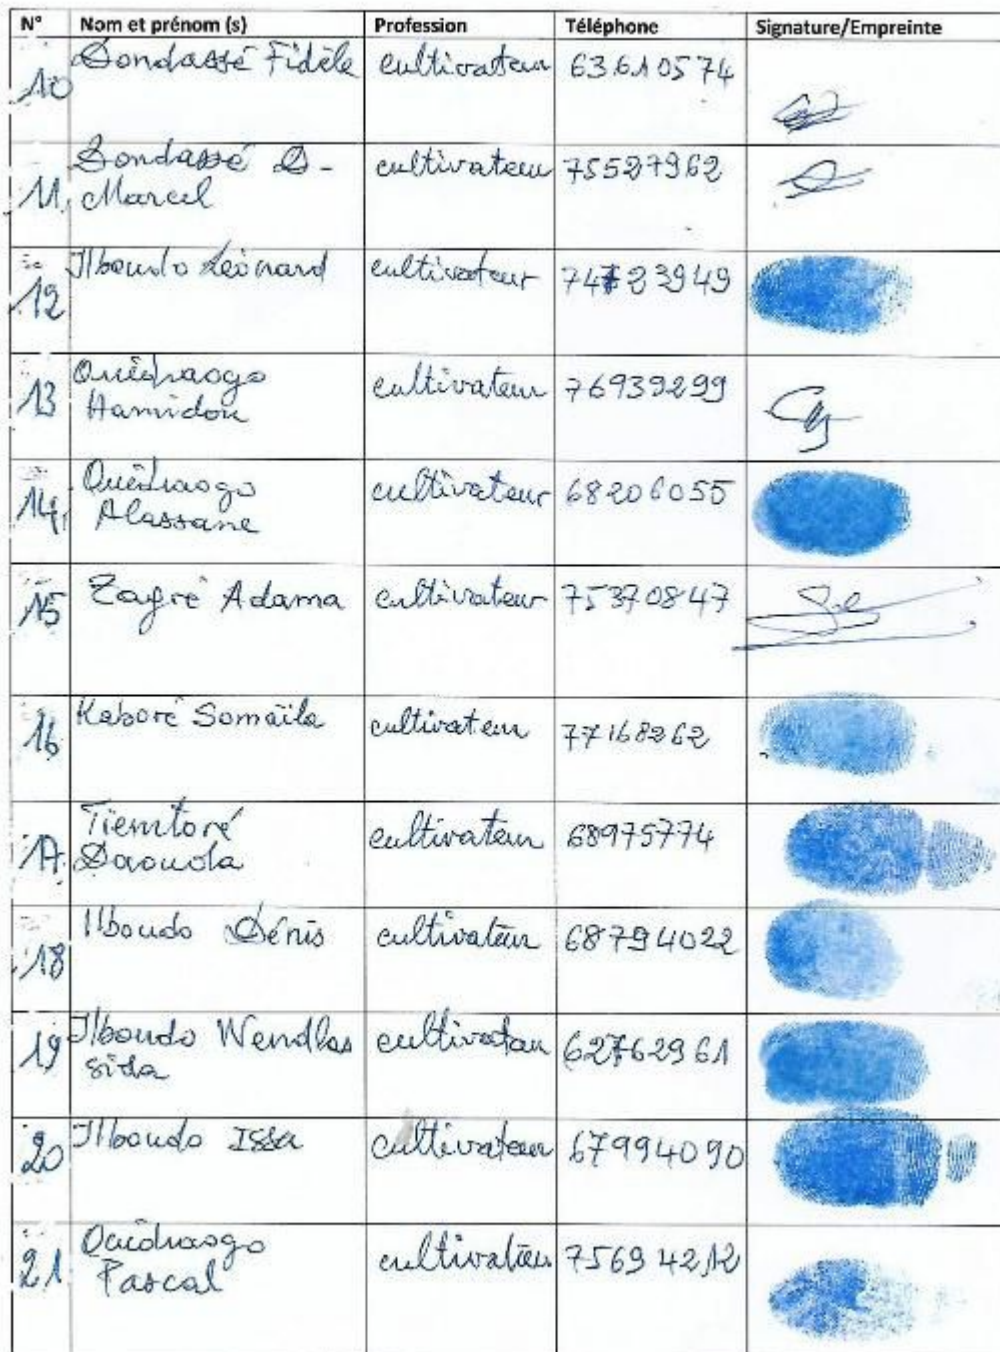 N° Nom et prénom (s) Profession Téléphone Signature/Empreinte
10 Sondassé Fidèle cultivateur 63610574
11 Sondassé D- cultivateur 75527962
Marcel
12 Ilboudo Léonard cultivateur 74723949
13 Ouédraogo cultivateur 76939299
Hamidou
14 Ouédraogo cultivateur 68206055
Alassane
15 Zagré Adama cultivateur 75370847
16 Kaboré Somaïla cultivateur 77168262
17 Tiemtoré cultivateur 68975774
Daouda
18 Ilboudo Dénis cultivateur 68794022
19 Ilboudo Wendlas cultivateur 62762961
sida
20 Ilboudo Issa cultivateur 67994090
21 Ouédraogo cultivateur 75694212
Pascal